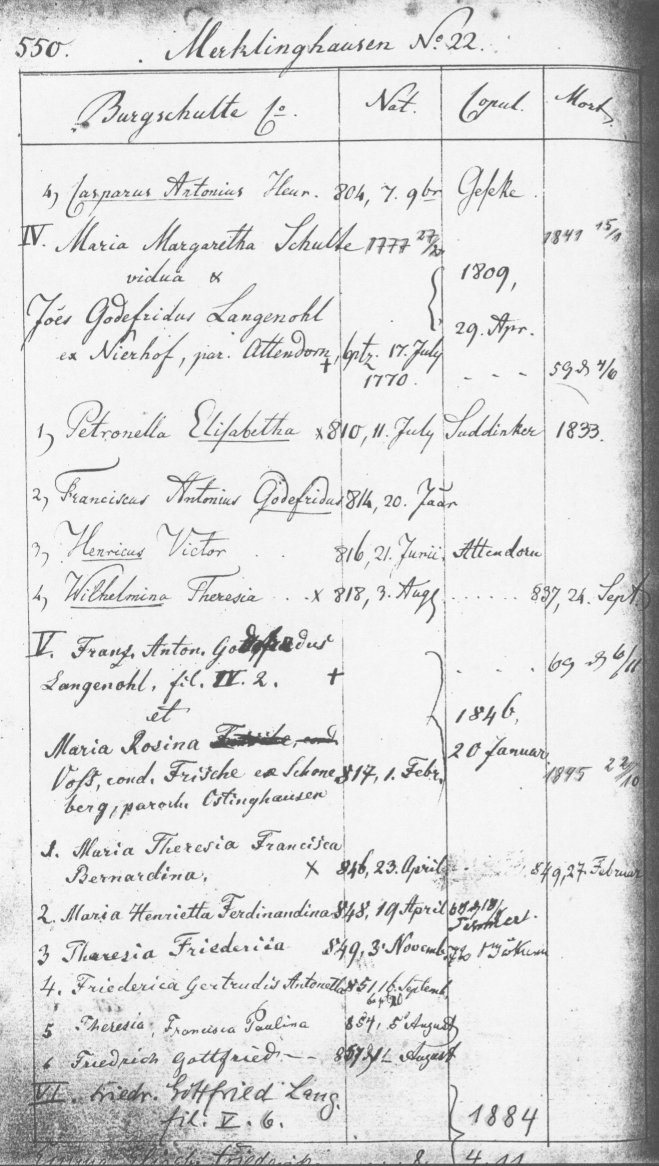 550. Merklinghausen No. 22.
Burgschulte Co. Nat. Copul. Mort.
4, Casparus Antonius Heur. 804, 7. 9br Geseke
IV. Maria Margaretha Schulte 1777 1841 15/1
vidua & 1809,
Joes Godefridus Langenohl 29. Apr.
ex Nierhof, par. Attendorn, bptz. 17. July
+ 1770. - - - 59
1, Petronella Elisabetha x 810, 11. July Suddinker 1833.
2, Franciscus Antonius Godefridus 814, 20. Jaar
3, Henricus Victor . . 816, 21. Junii. Attendorn
4, Wilhelmina Theresia . . x 818, 3. Aug . . . . . 837, 24. Sept.
V. Franz. Anton. Godefridus
Langenohl, fil. IV. 2. + . . . . 69 6/11
et 1846,
Maria Rosina 20 Januar
Voss, cond. Frische ex Schone 817, 1. Febr. 1895 22/10
berg, paroch. Ostinghausen
1. Maria Theresia Francisca
Bernardina. x 846, 23. April 849, 27. Februar
2. Maria Henrietta Ferdinandina 848, 19 April
3 Theresia Friedericia 849, 3. Novemb.
4. Friederica Gertrudis Antonetta 851, 16. Septemb.
5 Theresia, Francisca Paulina 854, 5 August
6 Friedrich Gottfried - - 857 August
VI. Friedr. Gottfried Lang.
fil. V. 6. 1884
4 11